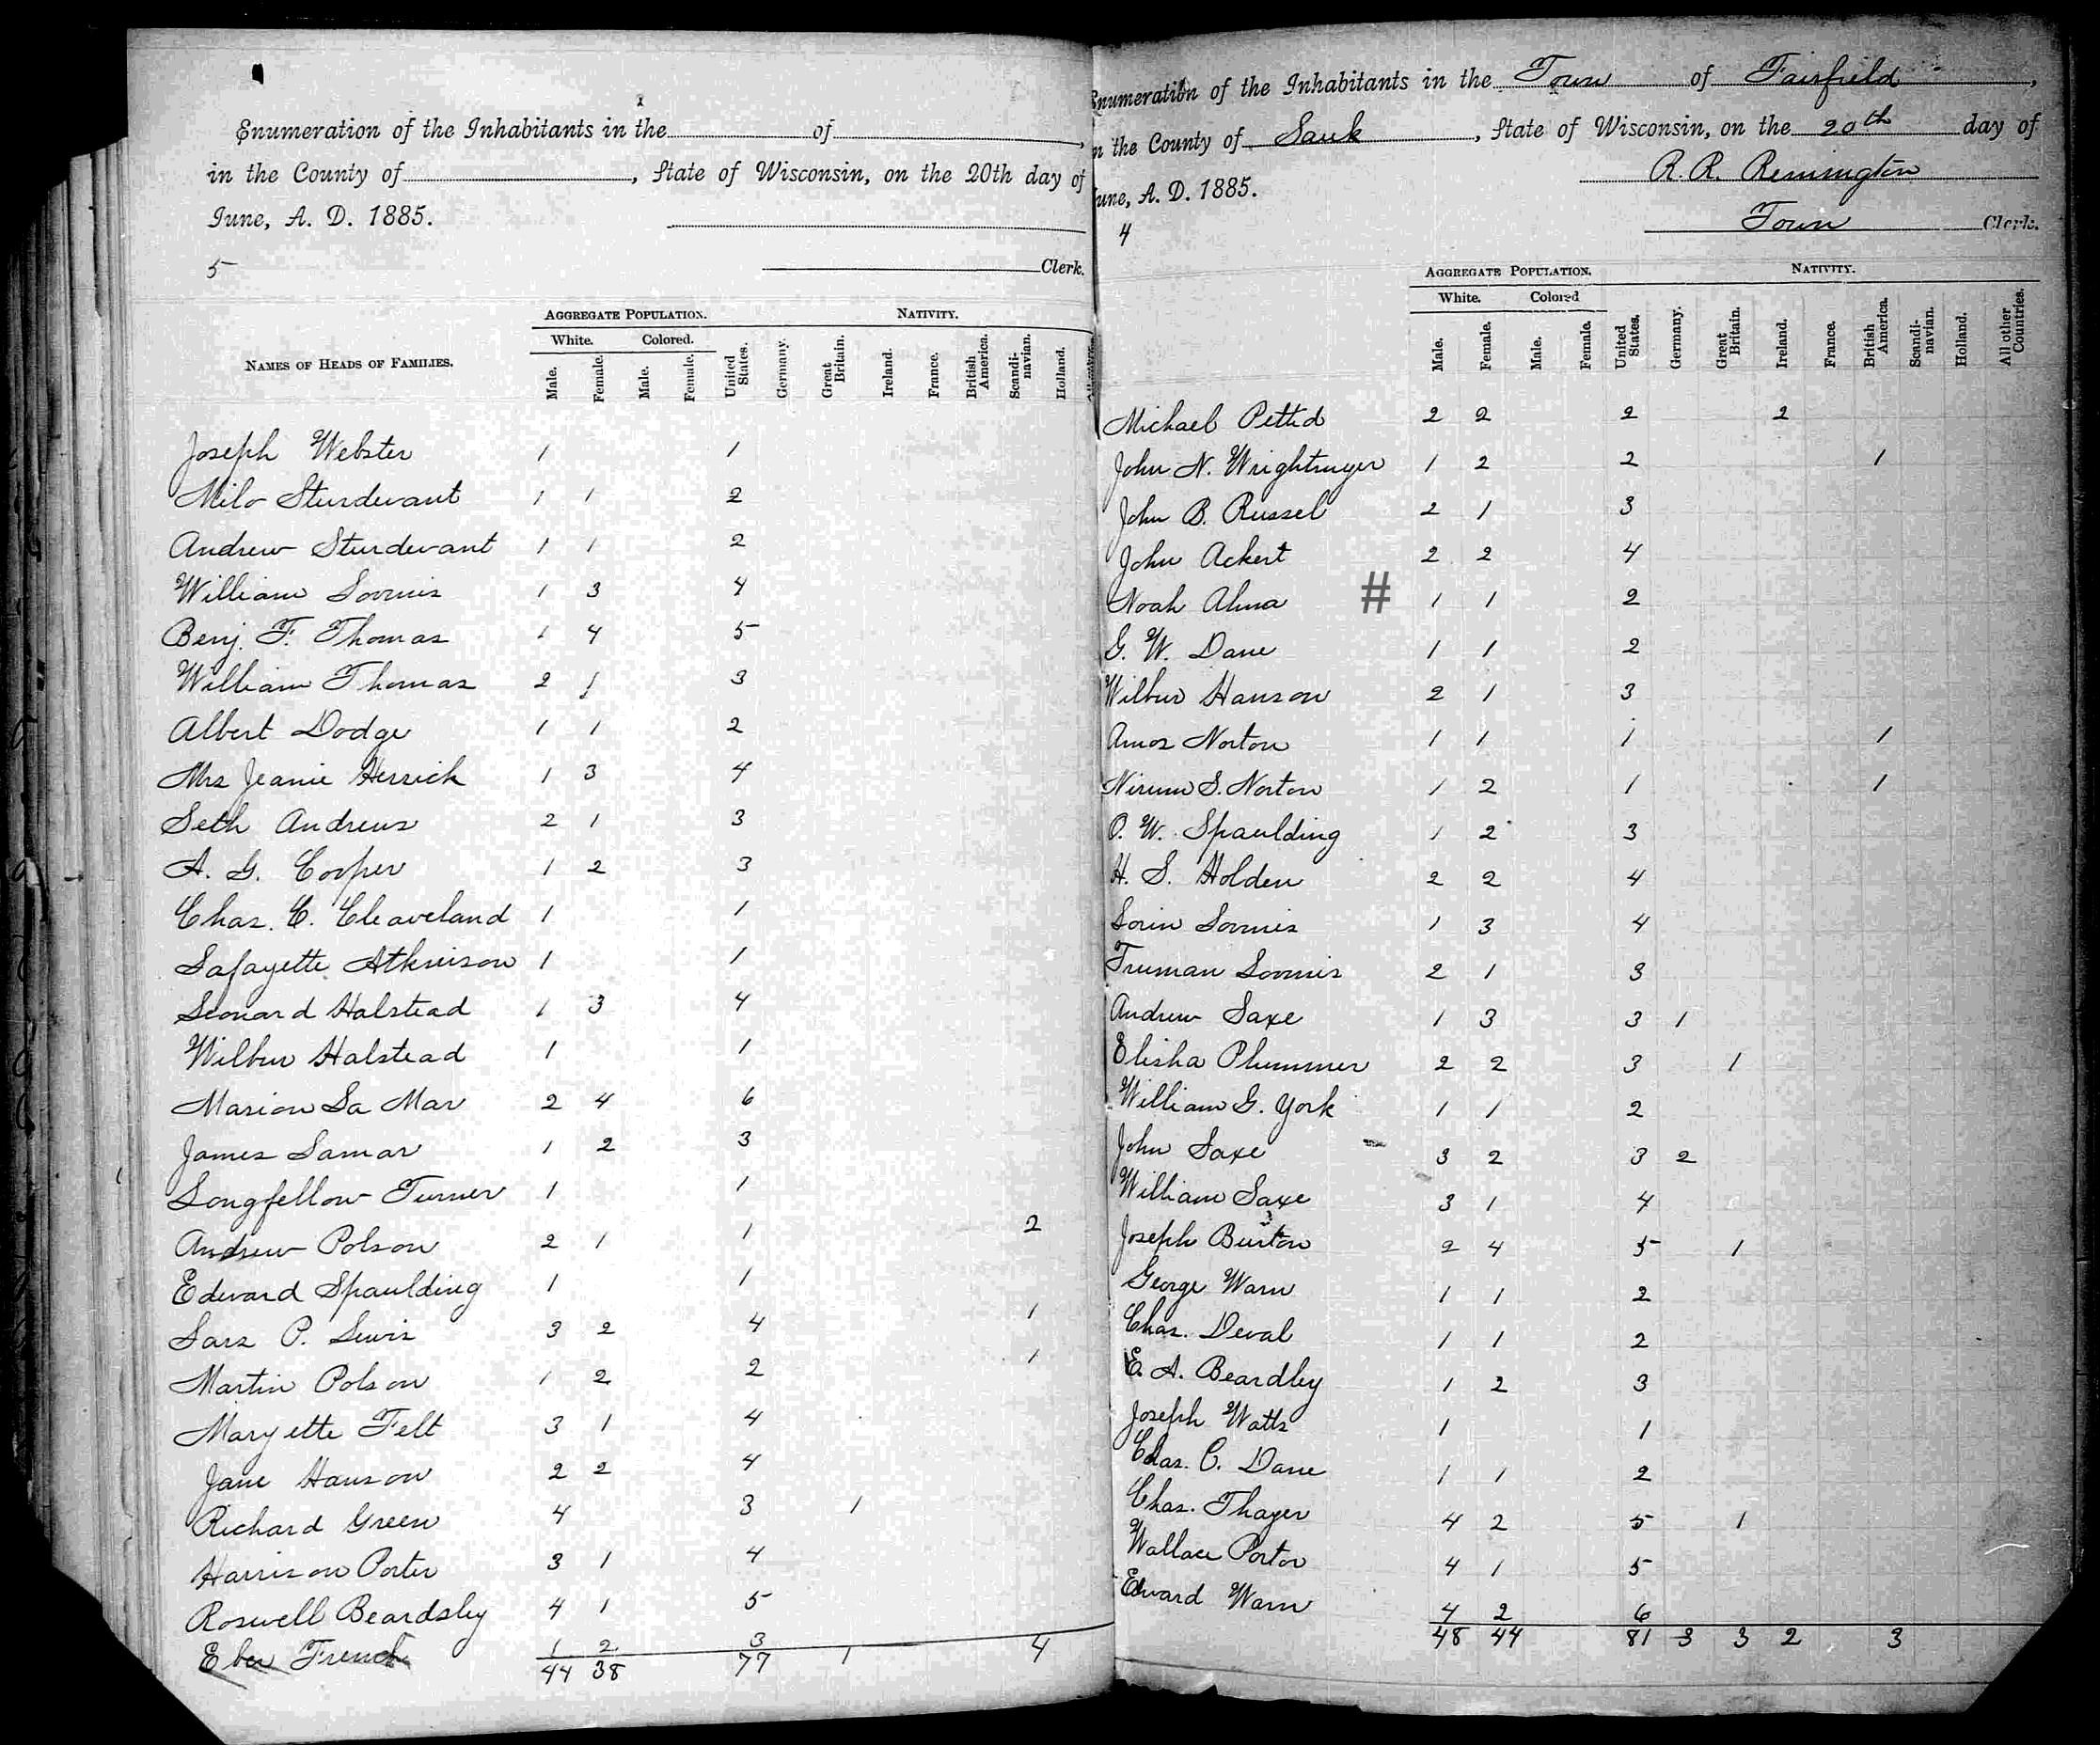 Enumeration of the Inhabitants in the of ,
in the County of , State of Wisconsin, on the 20th day of
June, A. D. 1885.
5 Clerk.
AGGREGATE POPULATION. NATIVITY.
White. Colored.
NAMES OF HEADS OF FAMILIES. Male. Female. Male. Female. United States. Germany. Great Britain. Ireland. France. British America. Scandi-navian. Holland.
Joseph Webster 1 1
Milo Sturdevant 1 1 2
Andrew Sturdevant 1 1 2
William Loomis 1 3 4
Benj. F. Thomas 1 4 5
William Thomas 2 1 3
Albert Dodge 1 1 2
Mrs Jeanie Herrick 1 3 4
Seth Andrews 2 1 3
A. G. Cooper 1 2 3
Chas. C. Cleaveland 1 1
Lafayette Atkinson 1 1
Leonard Halstead 1 3 4
Wilbur Halstead 1 1
Marion La Mar 2 4 6
James Lamar 1 2 3
Longfellow Turner 1 1
Andrew Polson 2 1 1 2
Edward Spaulding 1 1
Lars P. Lewis 3 2 4 1
Martin Polson 1 2 2 1
Maryette Felt 3 1 4
Jane Hanson 2 2 4
Richard Green 4 3 1
Harrison Porter 3 1 4
Roswell Beardsley 4 1 5
Eber French 1 2 3
44 38 77 1 4
Enumeration of the Inhabitants in the Town of Fairfield ,
in the County of Sauk , State of Wisconsin, on the 20th day of
June, A. D. 1885. R. R. Remington
4 Town Clerk.
AGGREGATE POPULATION. NATIVITY.
White. Colored
Male. Female. Male. Female. United States. Germany. Great Britain. Ireland. France. British America. Scandi-navian. Holland. All other Countries.
Michael Pettid 2 2 2 2
John N. Wrightmyer 1 2 2 1
John B. Russel 2 1 3
John Ackert 2 2 4
Noah Alma # 1 1 2
G. W. Dane 1 1 2
Wilbur Hanson 2 1 3
Amos Norton 1 1 1 1
S. Norton 1 2 1 1
O. W. Spaulding 1 2 3
H. S. Holden 2 2 4
Lorin Loomis 1 3 4
Truman Loomis 2 1 3
Andrew Saxe 1 3 3 1
Elisha Plummer 2 2 3 1
William G. York 1 1 2
John Saxe 3 2 3 2
William Saxe 3 1 4
Joseph Burton 2 4 5 1
George Warn 1 1 2
Chas. Deval 1 1 2
E. A. Beardley 1 2 3
Joseph Watts 1 1
Chas. C. Dane 1 1 2
Chas. Thayer 4 2 5 1
Wallace Porter 4 1 5
Edward Warn 4 2 6
48 44 81 3 3 2 3